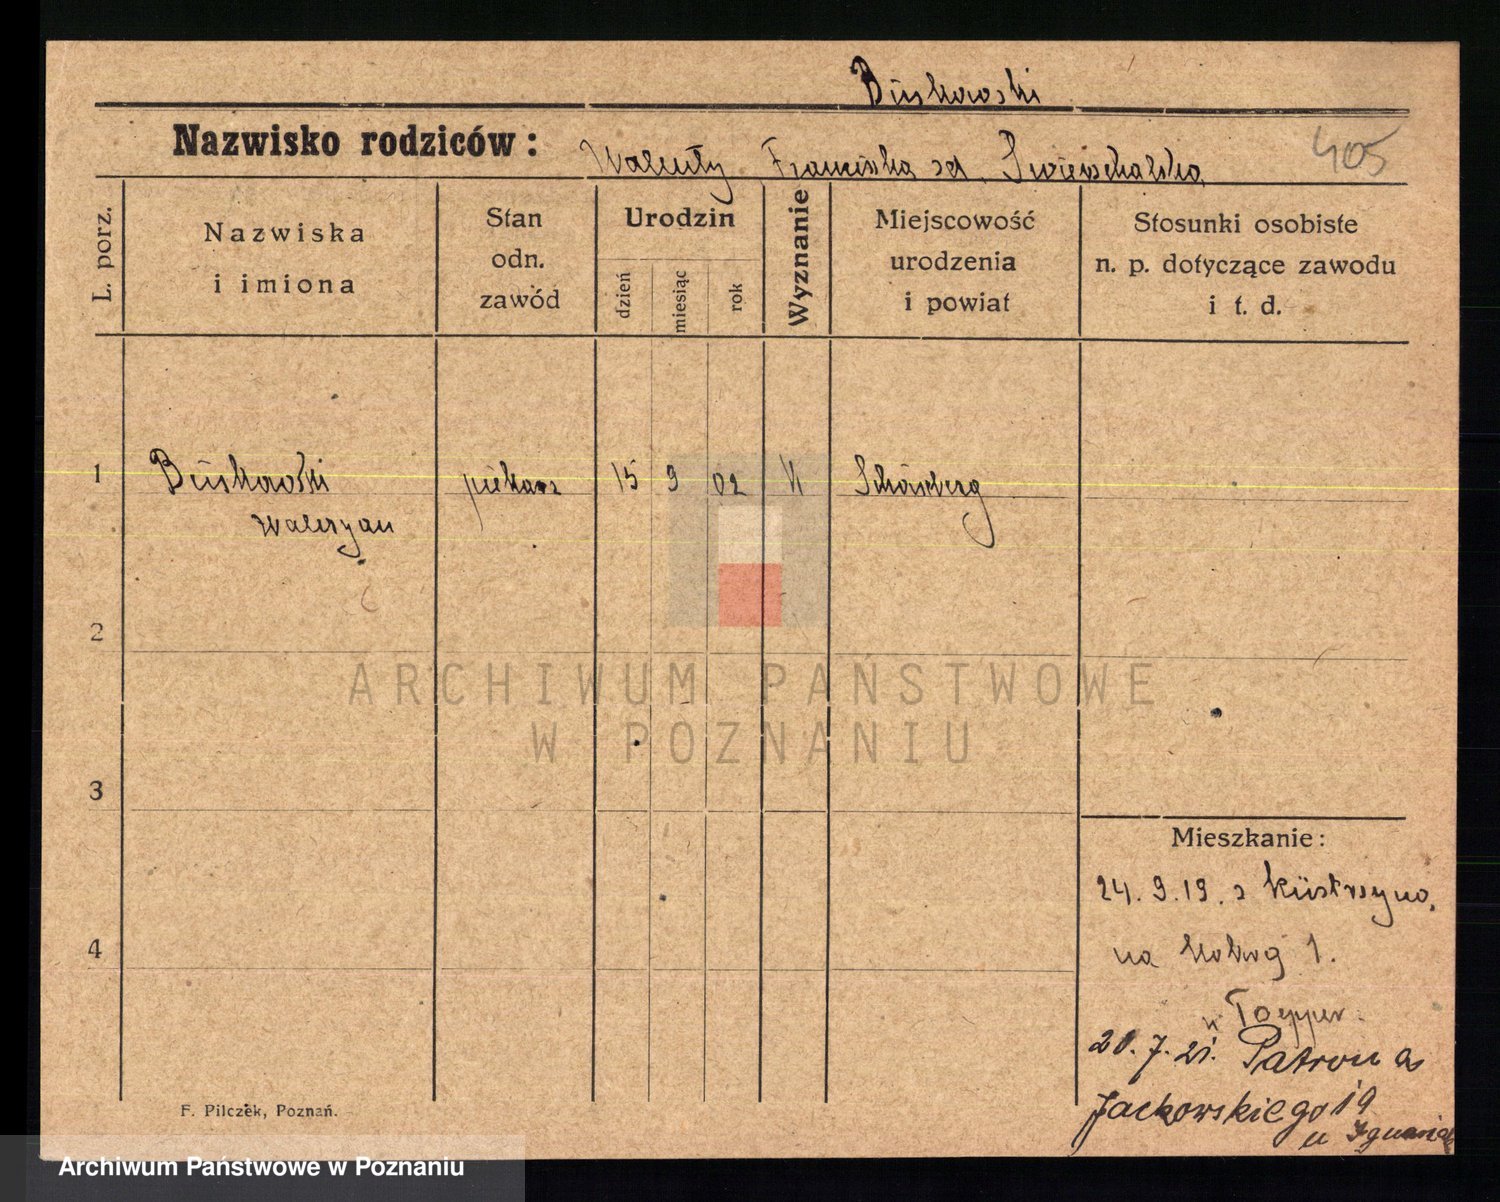 Buskowski
Nazwisko rodziców: Walenty Franciszka zd.
405
L. porz.
Nazwiska
i imiona
Stan
odn.
zawód
Urodzin
dzień
miesiąc
rok
Wyznanie
Miejscowość
urodzenia
i powiat
Stosunki osobiste
n. p. dotyczące zawodu
i t. d.
1 Buskowski piekarz 15 9 02 k Schönberg
Waleryan
2
3
4
ARCHIWUM PAŃSTWOWE
W POZNANIU
Mieszkanie:
24. 9. 19. z Küstrzyna,
na 1.
u Toepper.
20. 7. 21. Patron
Jackowskiego 19
u
F. Pilczek, Poznań.
Archiwum Państwowe w Poznaniu